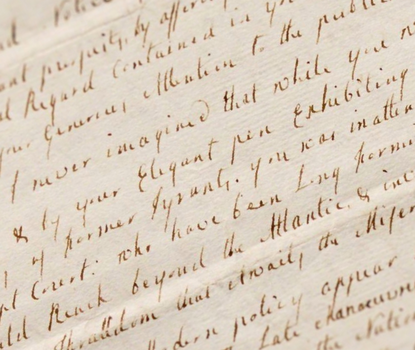 Notice
prosperity, by offering
Regard Contained in
your Generous Attention to the public
I never imagined that while you
& by your Elegant pen Exhibiting
of former Tyrants. you was inatten
pt Court: who have been Long
ld Reach beyond the Atlantic & inv
Thralldom that awaits the Miser
modern policy appear
Late Manoeuvre
the Nation